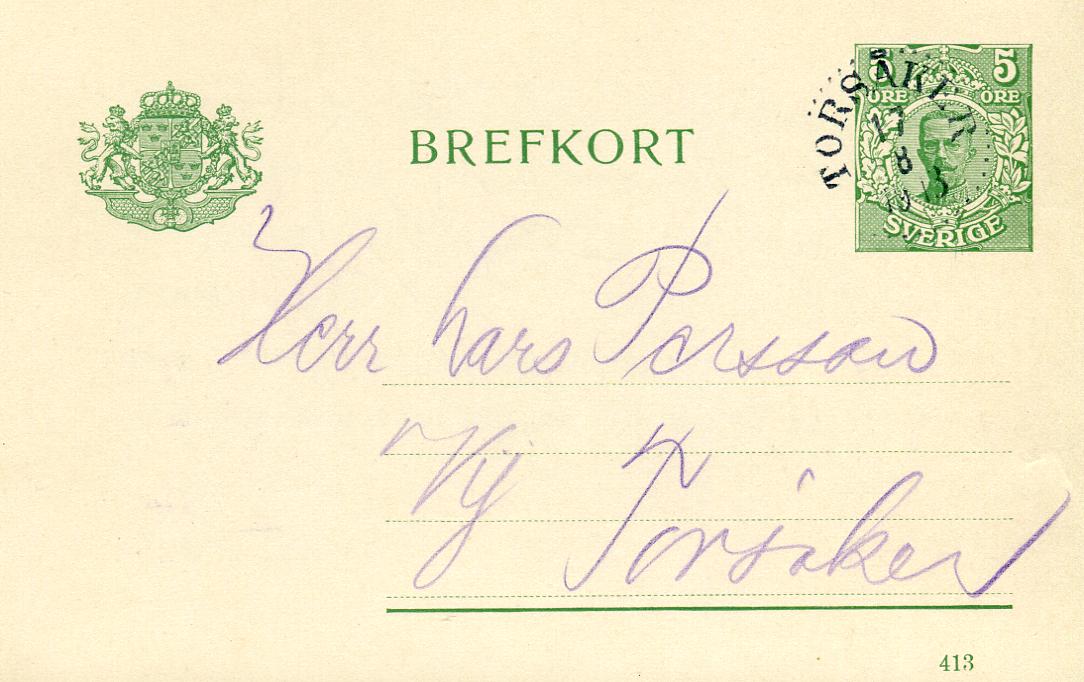 BREFKORT
5 5
ÖRE ÖRE
SVERIGE
TORSÅKER
17
8
1913
Herr Lars Persson
Vij
Torsåker
413